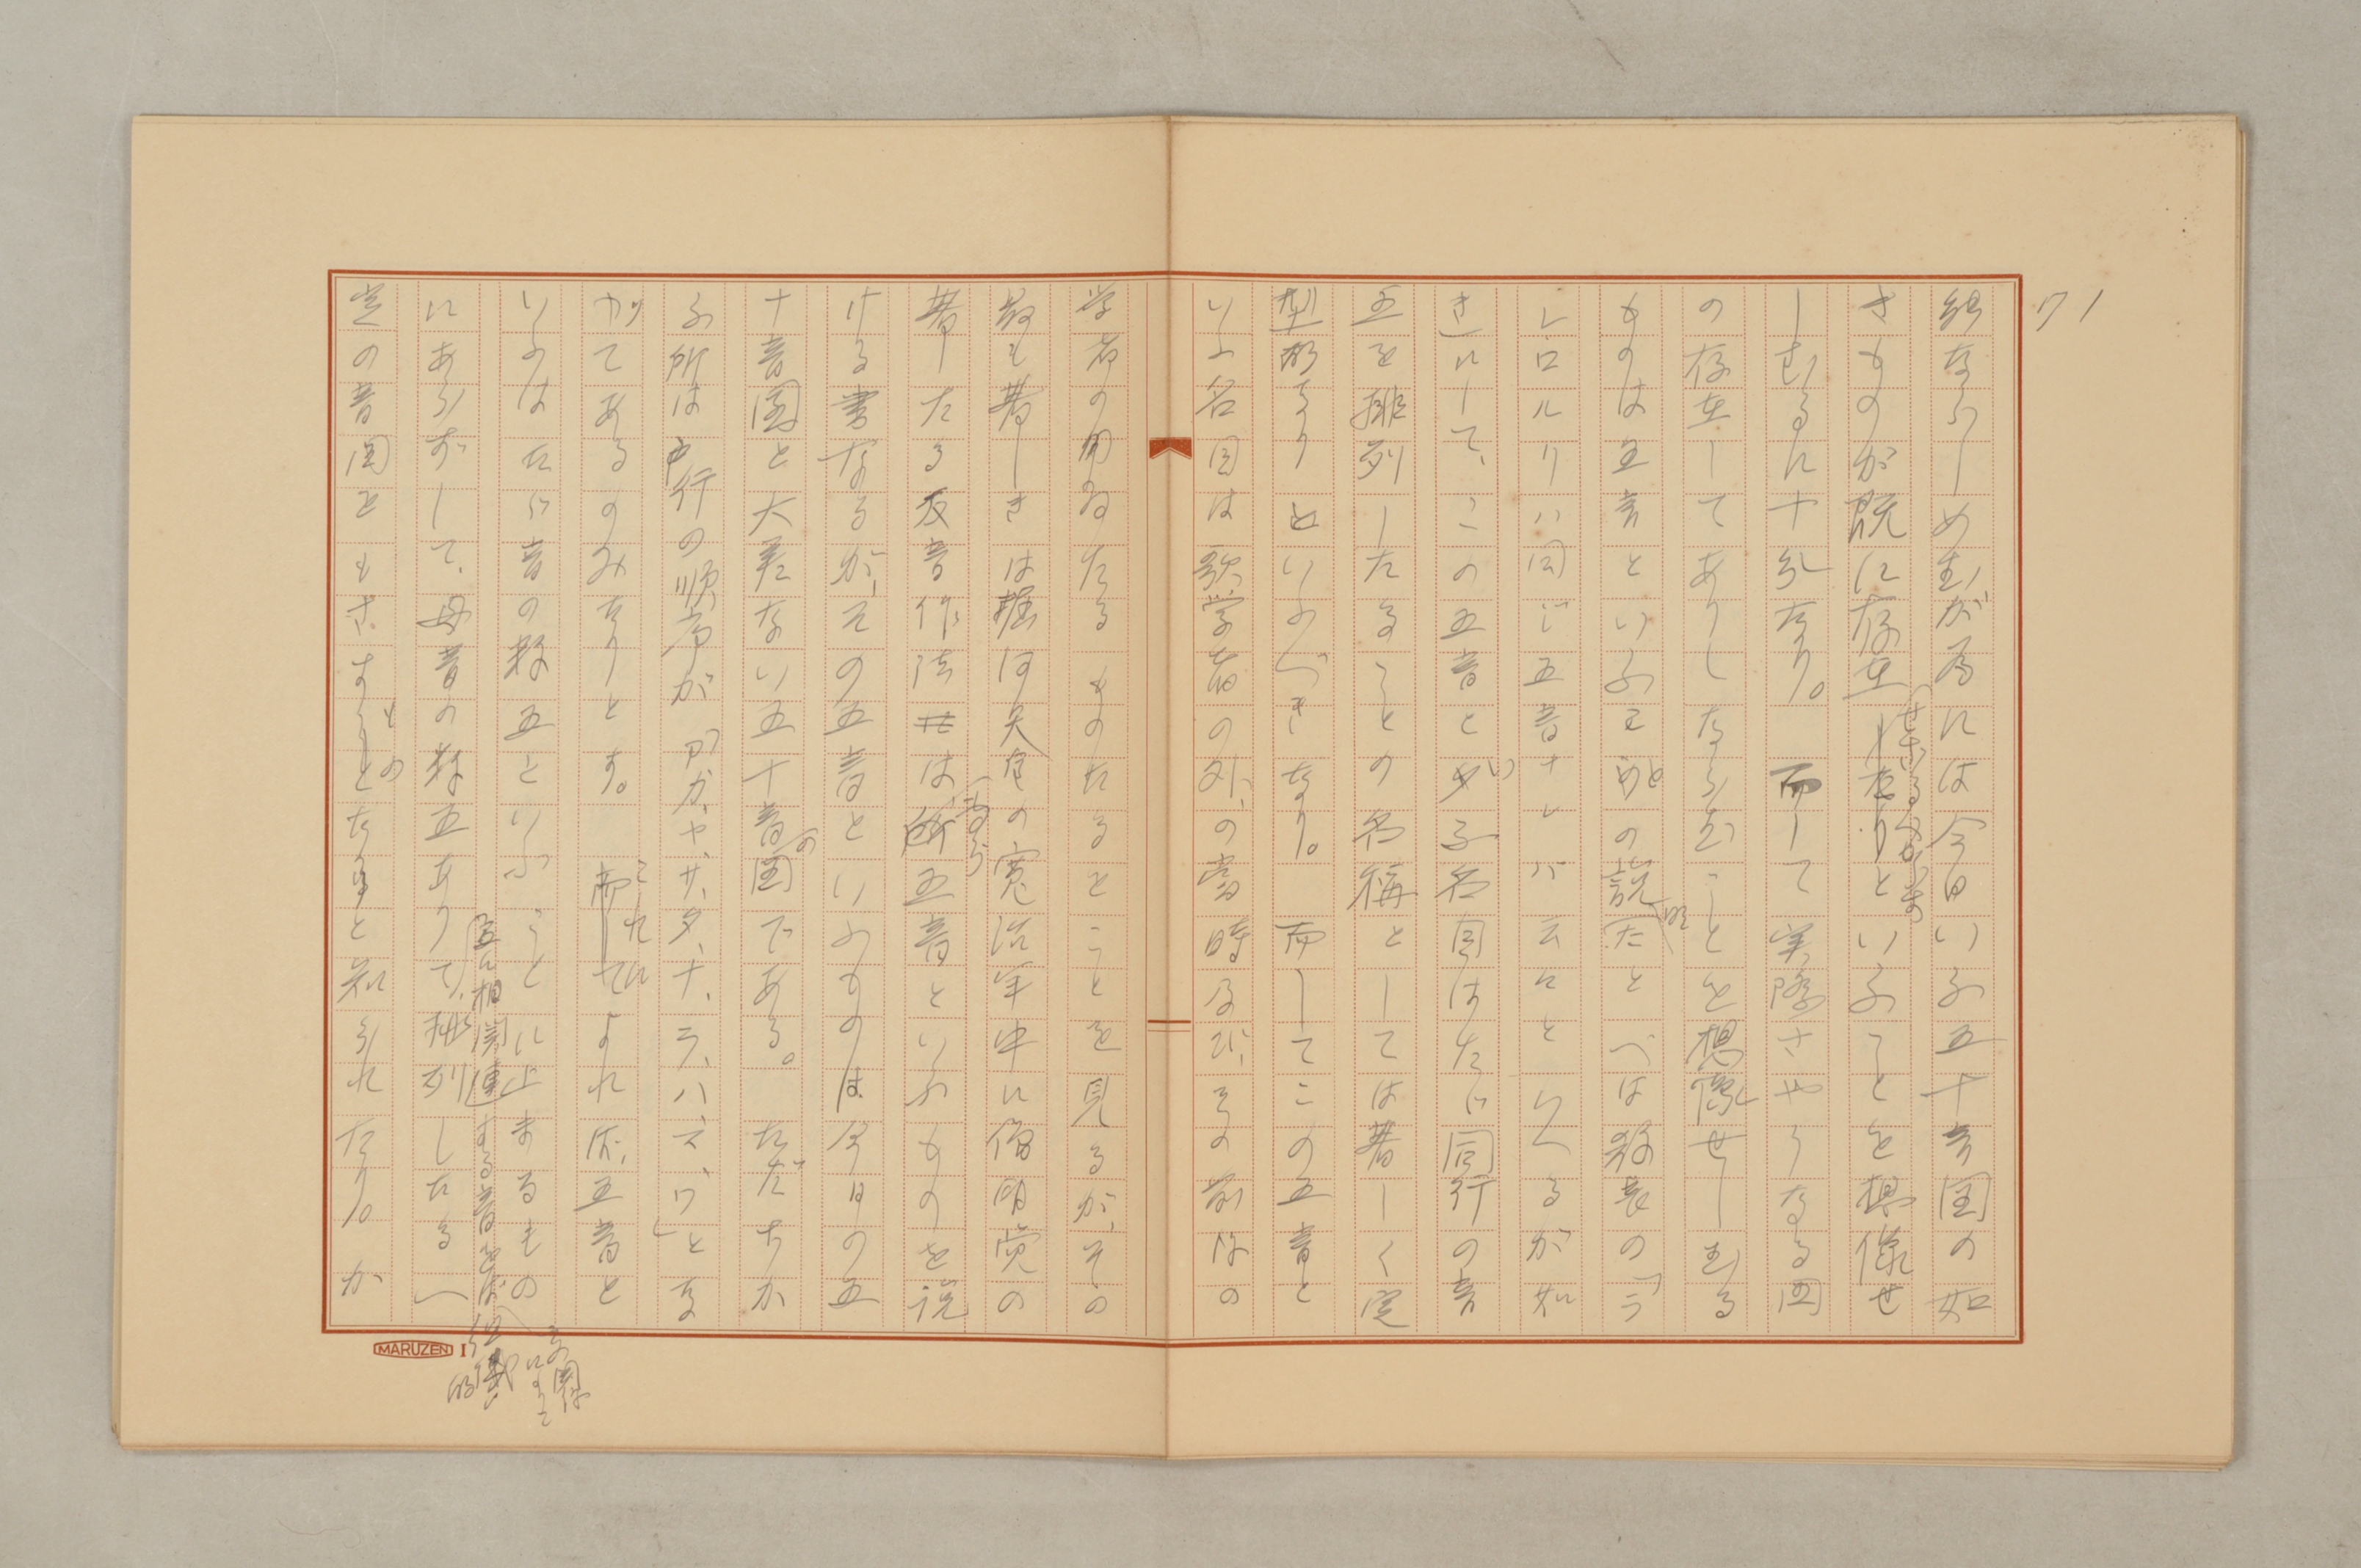 71
能ならしめむが為には今日いふ五十音図の如
きものが既に存在せざるべからずといふことを想像せ
しむるに十分なり。而して実際さやうなる図
の存在してありしならむことを想像せしむる
ものは五音といふことの説明とべは数表の「ラ
レロルリハ同ジ五音ナレバ云々といへるが如
きにして、この五音といふ名目はただ同行の音
五を排列したることの名称としては著しく定
型的なりといふべきなり。而してこの五音と
いふ名目は歌学者の外、の当時及び、その前後の
学者の用ゐたるものたることを見るが、その
最も著しきは
の寛治年中に僧明覚の
著したる反音作法は専ら五音といふものを説
ける書なるが、その五音といふものは今日の五
十音図と大差ない五十音の図である。ただちが
ふ所は行の順序が「アカ、ヤ、サ、タ、ナ、ラ、ハ、マ、ワ」とな
つてあるのみなりとす。これによれば、五音と
いふはただ音の数五といふことに止まるもの
にあらずして、母音の数五ありて、互に相関連する音をば その関係によりて 組織的 排列したる一
定の音図ともさすものなりと知られたり。か
MARUZEN I